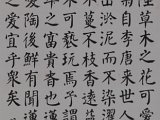 陸草木之花可愛
菊自李唐來世人
出淤泥而不染濯
不蔓不枝香遠益
可褻玩焉予謂
之富貴者也蓮
愛陶後鮮有聞蓮
之愛宜乎眾矣